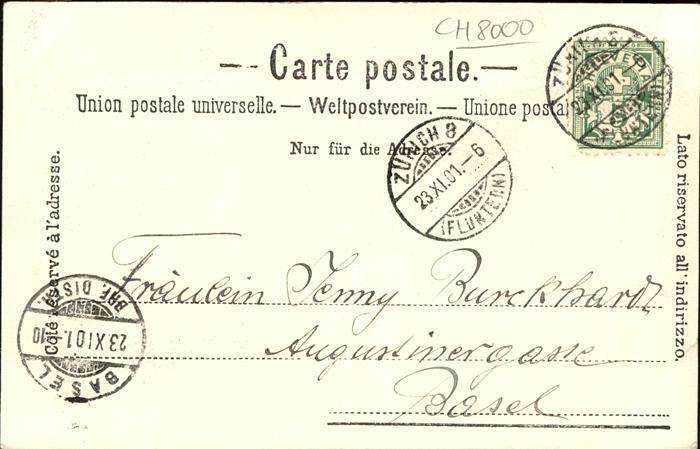 CH 8000
— Carte postale. —
Union postale universelle. — Weltpostverein. — Unione postal
Nur für die Adresse.
Côté réservé à l'adresse.
Lato riservato all' indirizzo.
ZÜRICH 8
23.XI.01.-6
(FLUNTERN)
HELVETIA
Fräulein Jenny Burckhardt
Augustinergasse
Basel
BASEL
23.XI.01.-10
BRF. DIST.